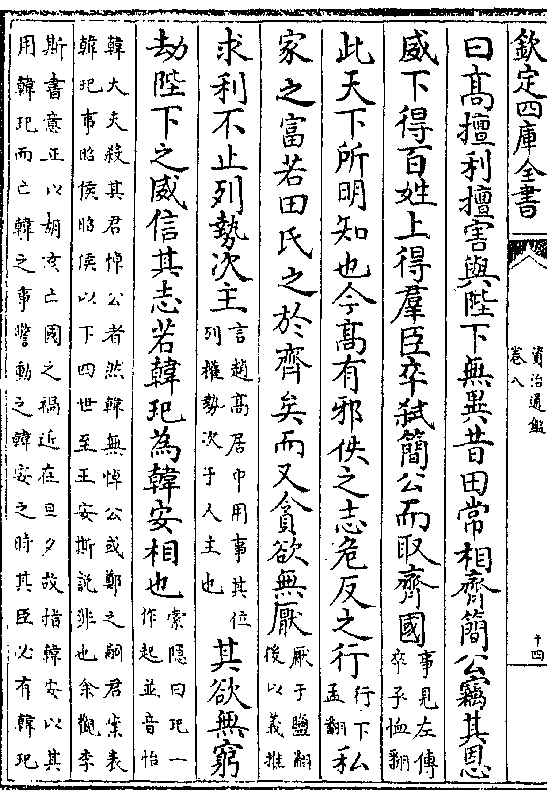 欽定四庫全書
資治通鑑
卷八
十四
曰高擅利擅害與陛下無異昔田常相齊簡公竊其恩
威下得百姓上得羣臣卒弒簡公而取齊國
事見左傳
卒子恤翻
此天下所明知也今高有邪佚之志危反之行
行下
孟翻
私
家之富若田氏之於齊矣而又貪欲無厭
厭于鹽翻
後以義推
求利不止列勢次主
言趙高居中用事其位
列權勢次于人主也
其欲無窮
劫陛下之威信其志若韓玘為韓安相也
索隱曰玘一
作起並音怡
韓大夫殺其君悼公者然韓無悼公或鄭之嗣君案表
韓玘事昭侯昭侯以下四世至王安斯説非也余觀李
斯書意正以胡亥亡國之禍近在旦夕故指韓安以其
用韓玘而亡韓之事警動之韓安之時其臣必有韓玘